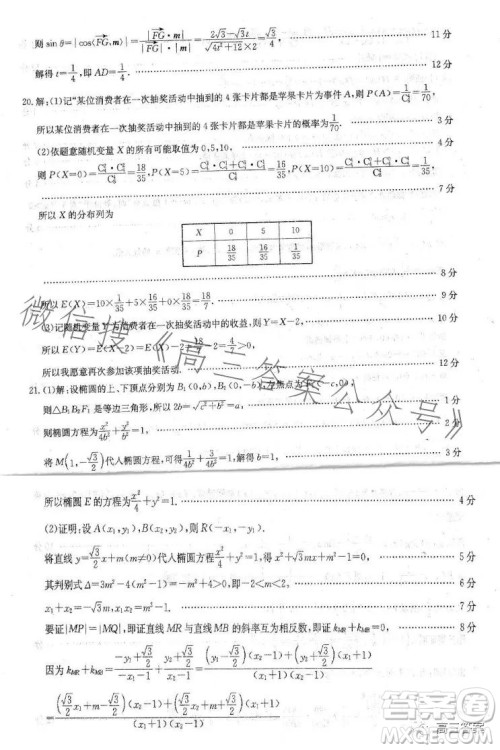 则 sin θ=|cos⟨FG,m⟩|=|FG·m|/(|FG|·|m|)=|2√3-√3t|/(√(4t²+12)×2)=√3/4, 11 分
解得 t=1/4,即 AD=1/4. 12 分
20.解:(1)记“某位消费者在一次抽奖活动中抽到的 4 张卡片都是苹果卡片为事件 A,则 P(A)=1/C₈⁴=1/70,
所以某位消费者在一次抽奖活动中抽到的 4 张卡片都是苹果卡片的概率为 1/70. 3 分
(2)依题意随机变量 X 的所有可能取值为 0,5,10, 4 分
=18/35,P(X=5)= =16/35,P(X=10)= =1/35, 7 分
所以 X 的分布列为
X 0 5 10
P 18/35 16/35 1/35
8 分
所以 E(X)=10×1/35+5×16/35+0×18/35=18/7. 9 分
(3)记随机变量 Y 为消费者在一次抽奖活动中的收益,则 Y=X-2, 10 分
所以 E(Y)=E(X)-2=18/7-2=4/7>0, 11 分
所以我愿意再次参加该项抽奖活动. 12 分
21.(1)解:设椭圆的上、下顶点分别为 B₁(0,b),B₂(0,-b),左焦点为 F₁(-c,0),
则△B₁B₂F₁是等边三角形,所以 2b=√(c²+b²)=a, 1 分
则椭圆方程为 x²/4b²+y²/b²=1, 2 分
将 M(1,-√3/2)代入椭圆方程,可得 1/4b²+3/4b²=1,解得 b=1, 3 分
所以椭圆 E 的方程为 x²/4+y²=1. 4 分
(2)证明:设 A(x₁,y₁),B(x₂,y₂),则 R(-x₁,-y₁).
将直线 y=√3/2x+m(m≠0)代入椭圆方程 x²/4+y²=1 得 x²+√3mx+m²-1=0, 5 分
其判别式 Δ=3m²-4(m²-1)=4-m²>0,即-2<m<2, 6 分
x₁+x₂=-√3m,x₁x₂=m²-1. 7 分
要证|MP|=|MQ|,即证直线 MR 与直线 MB 的斜率互为相反数,即证 k_MR+k_MB=0,
因为 k_MR+k_MB=(-y₁+√3/2)/(-x₁-1)+(y₂+√3/2)/(x₂-1)=((y₁-√3/2)(x₂-1)+(y₂+√3/2)(x₁+1))/((x₁+1)(x₂-1))
微信搜《高三答案公众号》
答案圈
高三答案